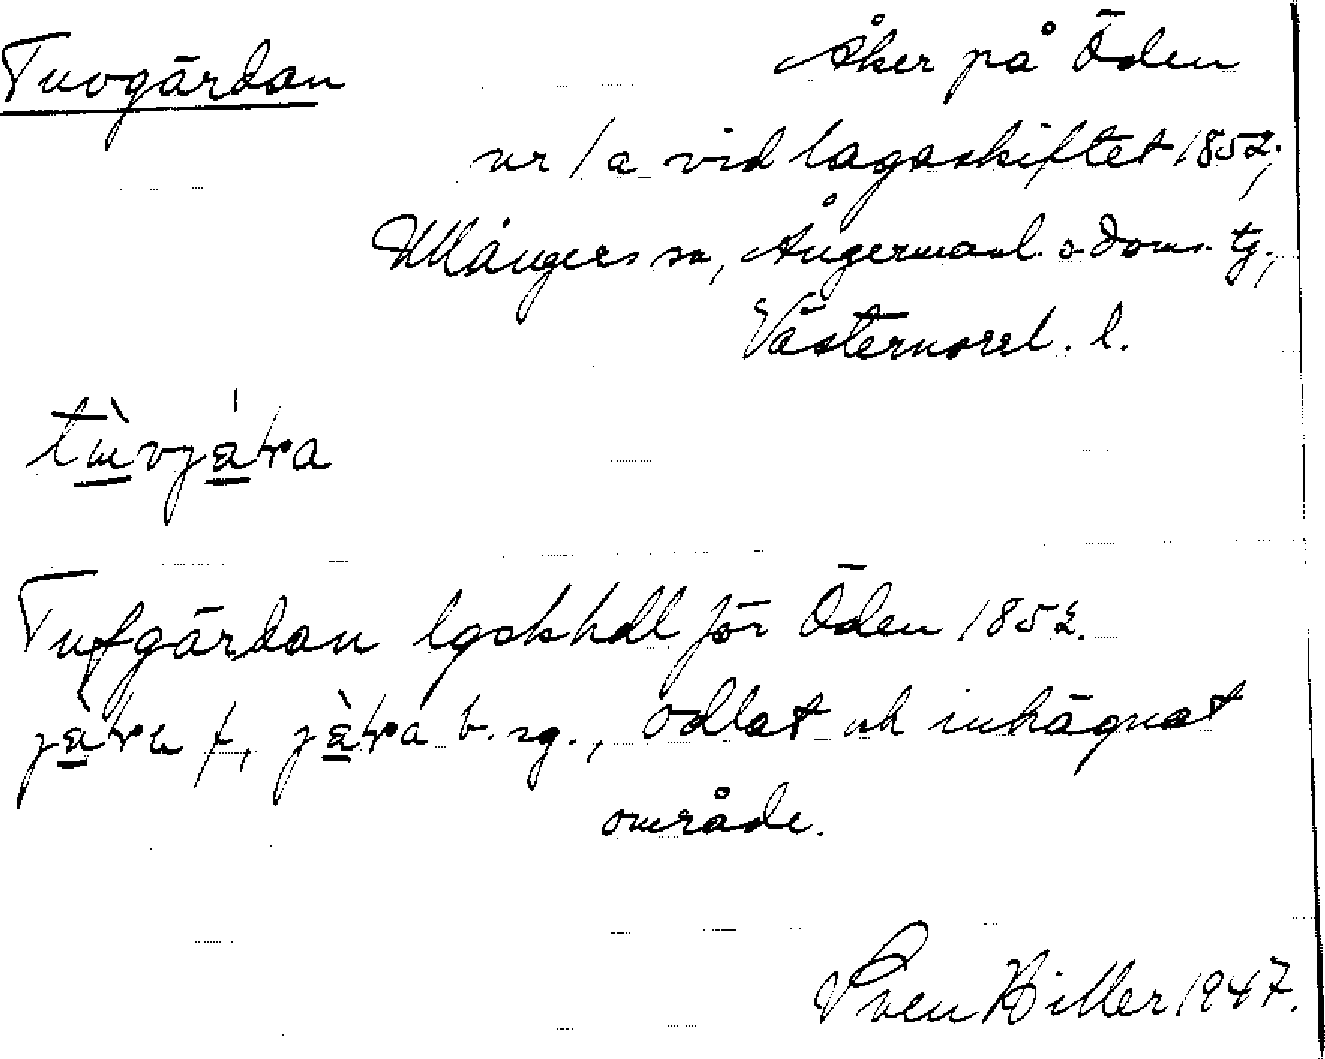 Tuvgärdan
Åker på Öden
nr 1a vid lagaskiftet 1852;
Ullångers sn, Ångermanl. s doms. tg,
Västernorrl. l.
Tufgärdan lgskhdl för Öden 1852.
b. sg., odlat och inhägnat
område.
Sven Hiller 1947.